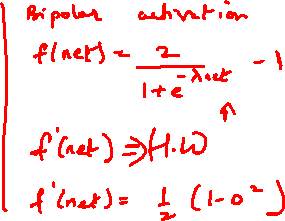 Bipolar activation
f(net) = 2 / (1 + e^-λnet) - 1
↑
f'(net) ⇒ H.W
f'(net) = 1/2 (1-o²)